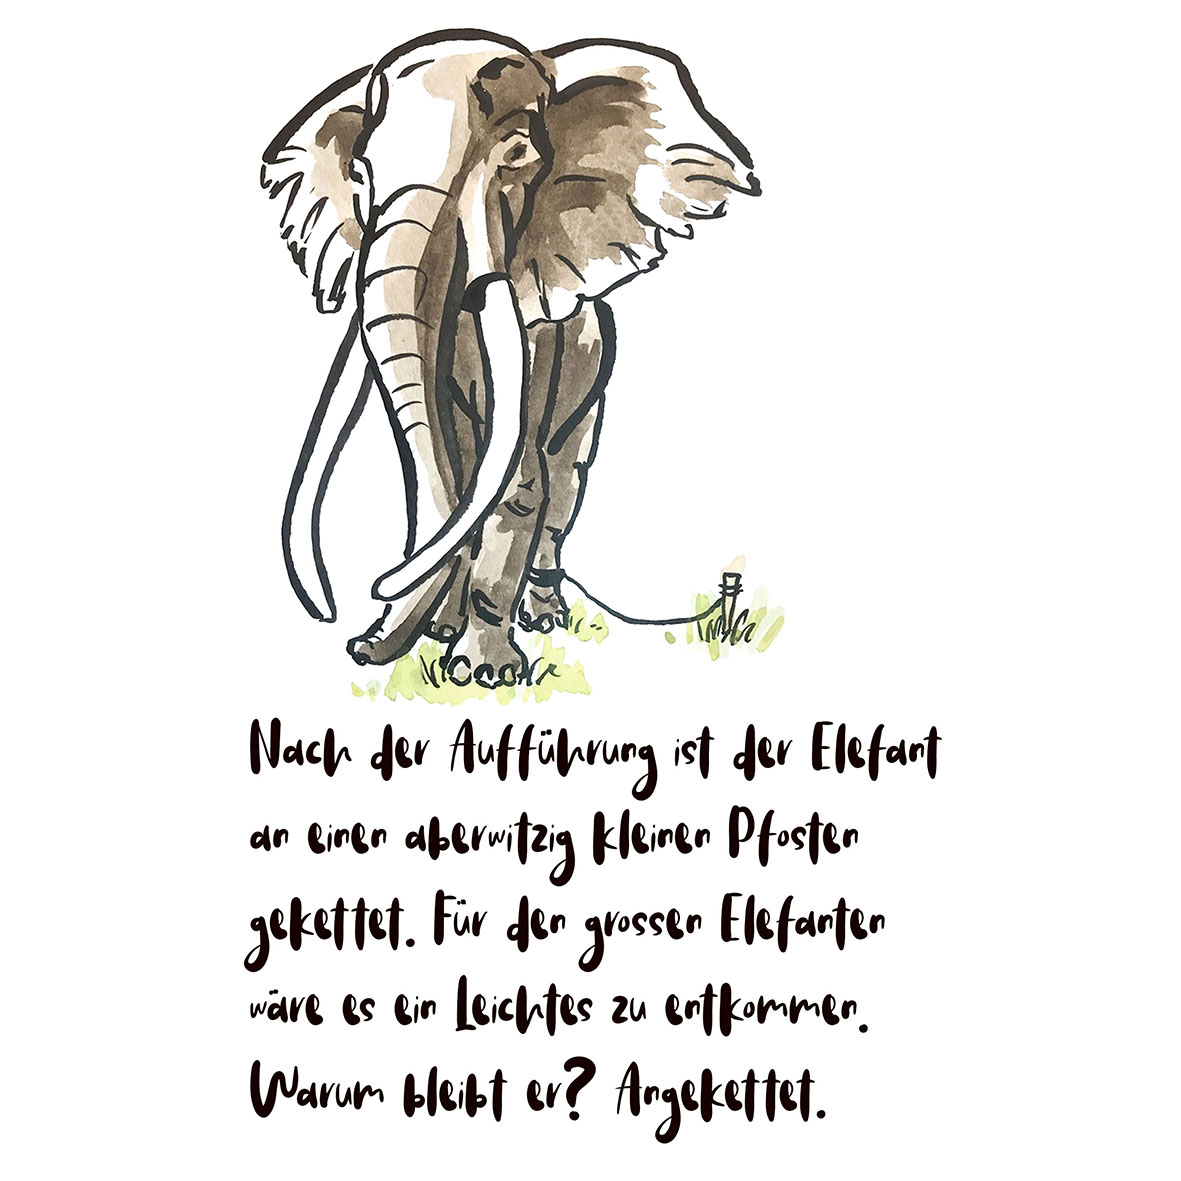 Nach der Aufführung ist der Elefant
an einen aberwitzig kleinen Pfosten
gekettet. Für den grossen Elefanten
wäre es ein Leichtes zu entkommen.
Warum bleibt er? Angekettet.